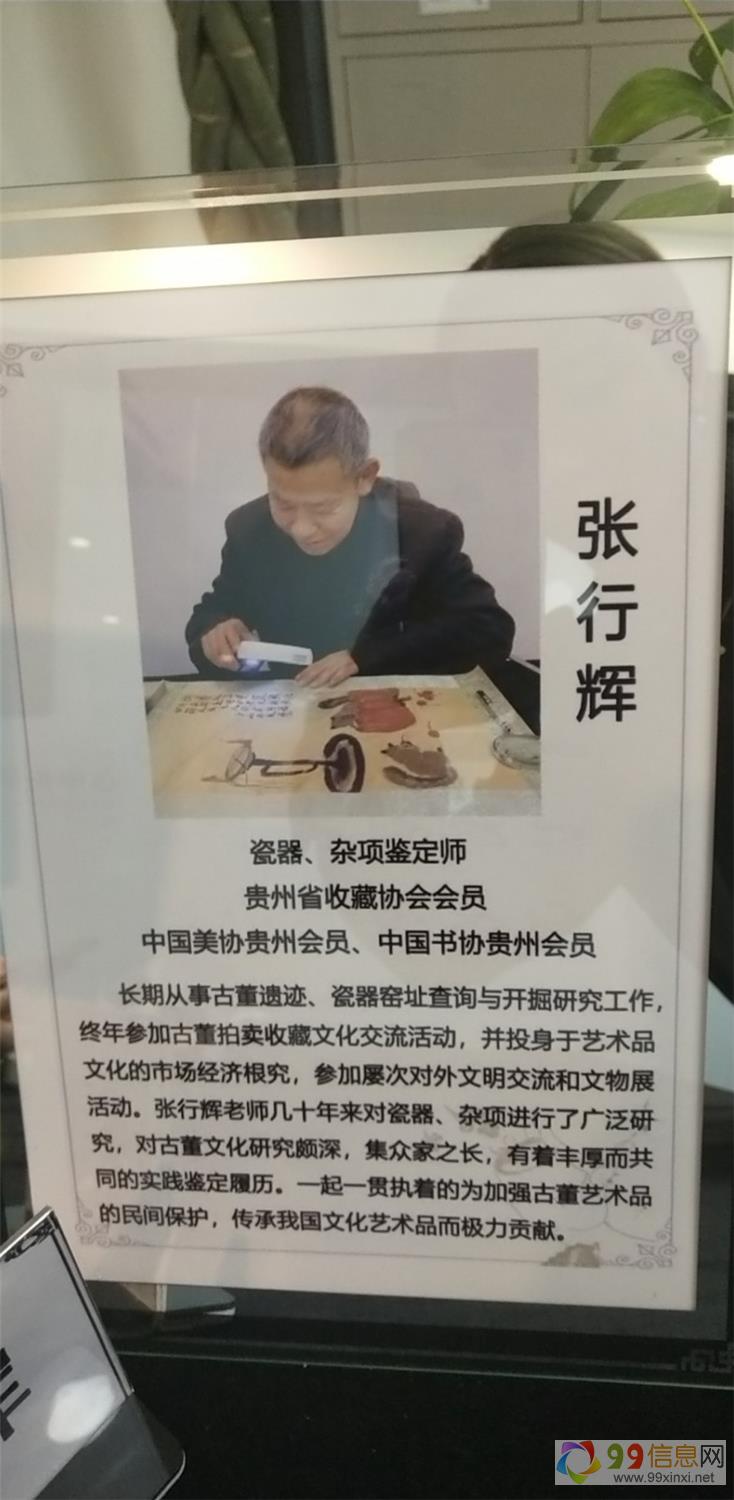 张行辉
瓷器、杂项鉴定师
贵州省收藏协会会员
中国美协贵州会员、中国书协贵州会员
长期从事古董遗迹、瓷器窑址查询与开掘研究工作，
终年参加古董拍卖收藏文化交流活动，并投身于艺术品
文化的市场经济根究，参加屡次对外文明交流和文物展
活动。张行辉老师几十年来对瓷器、杂项进行了广泛研
究，对古董文化研究颇深，集众家之长，有着丰厚而共
同的实践鉴定履历。一起一贯执着的为加强古董艺术品
的民间保护，传承我国文化艺术品而极力贡献。
99信息网
www.99xinxi.net